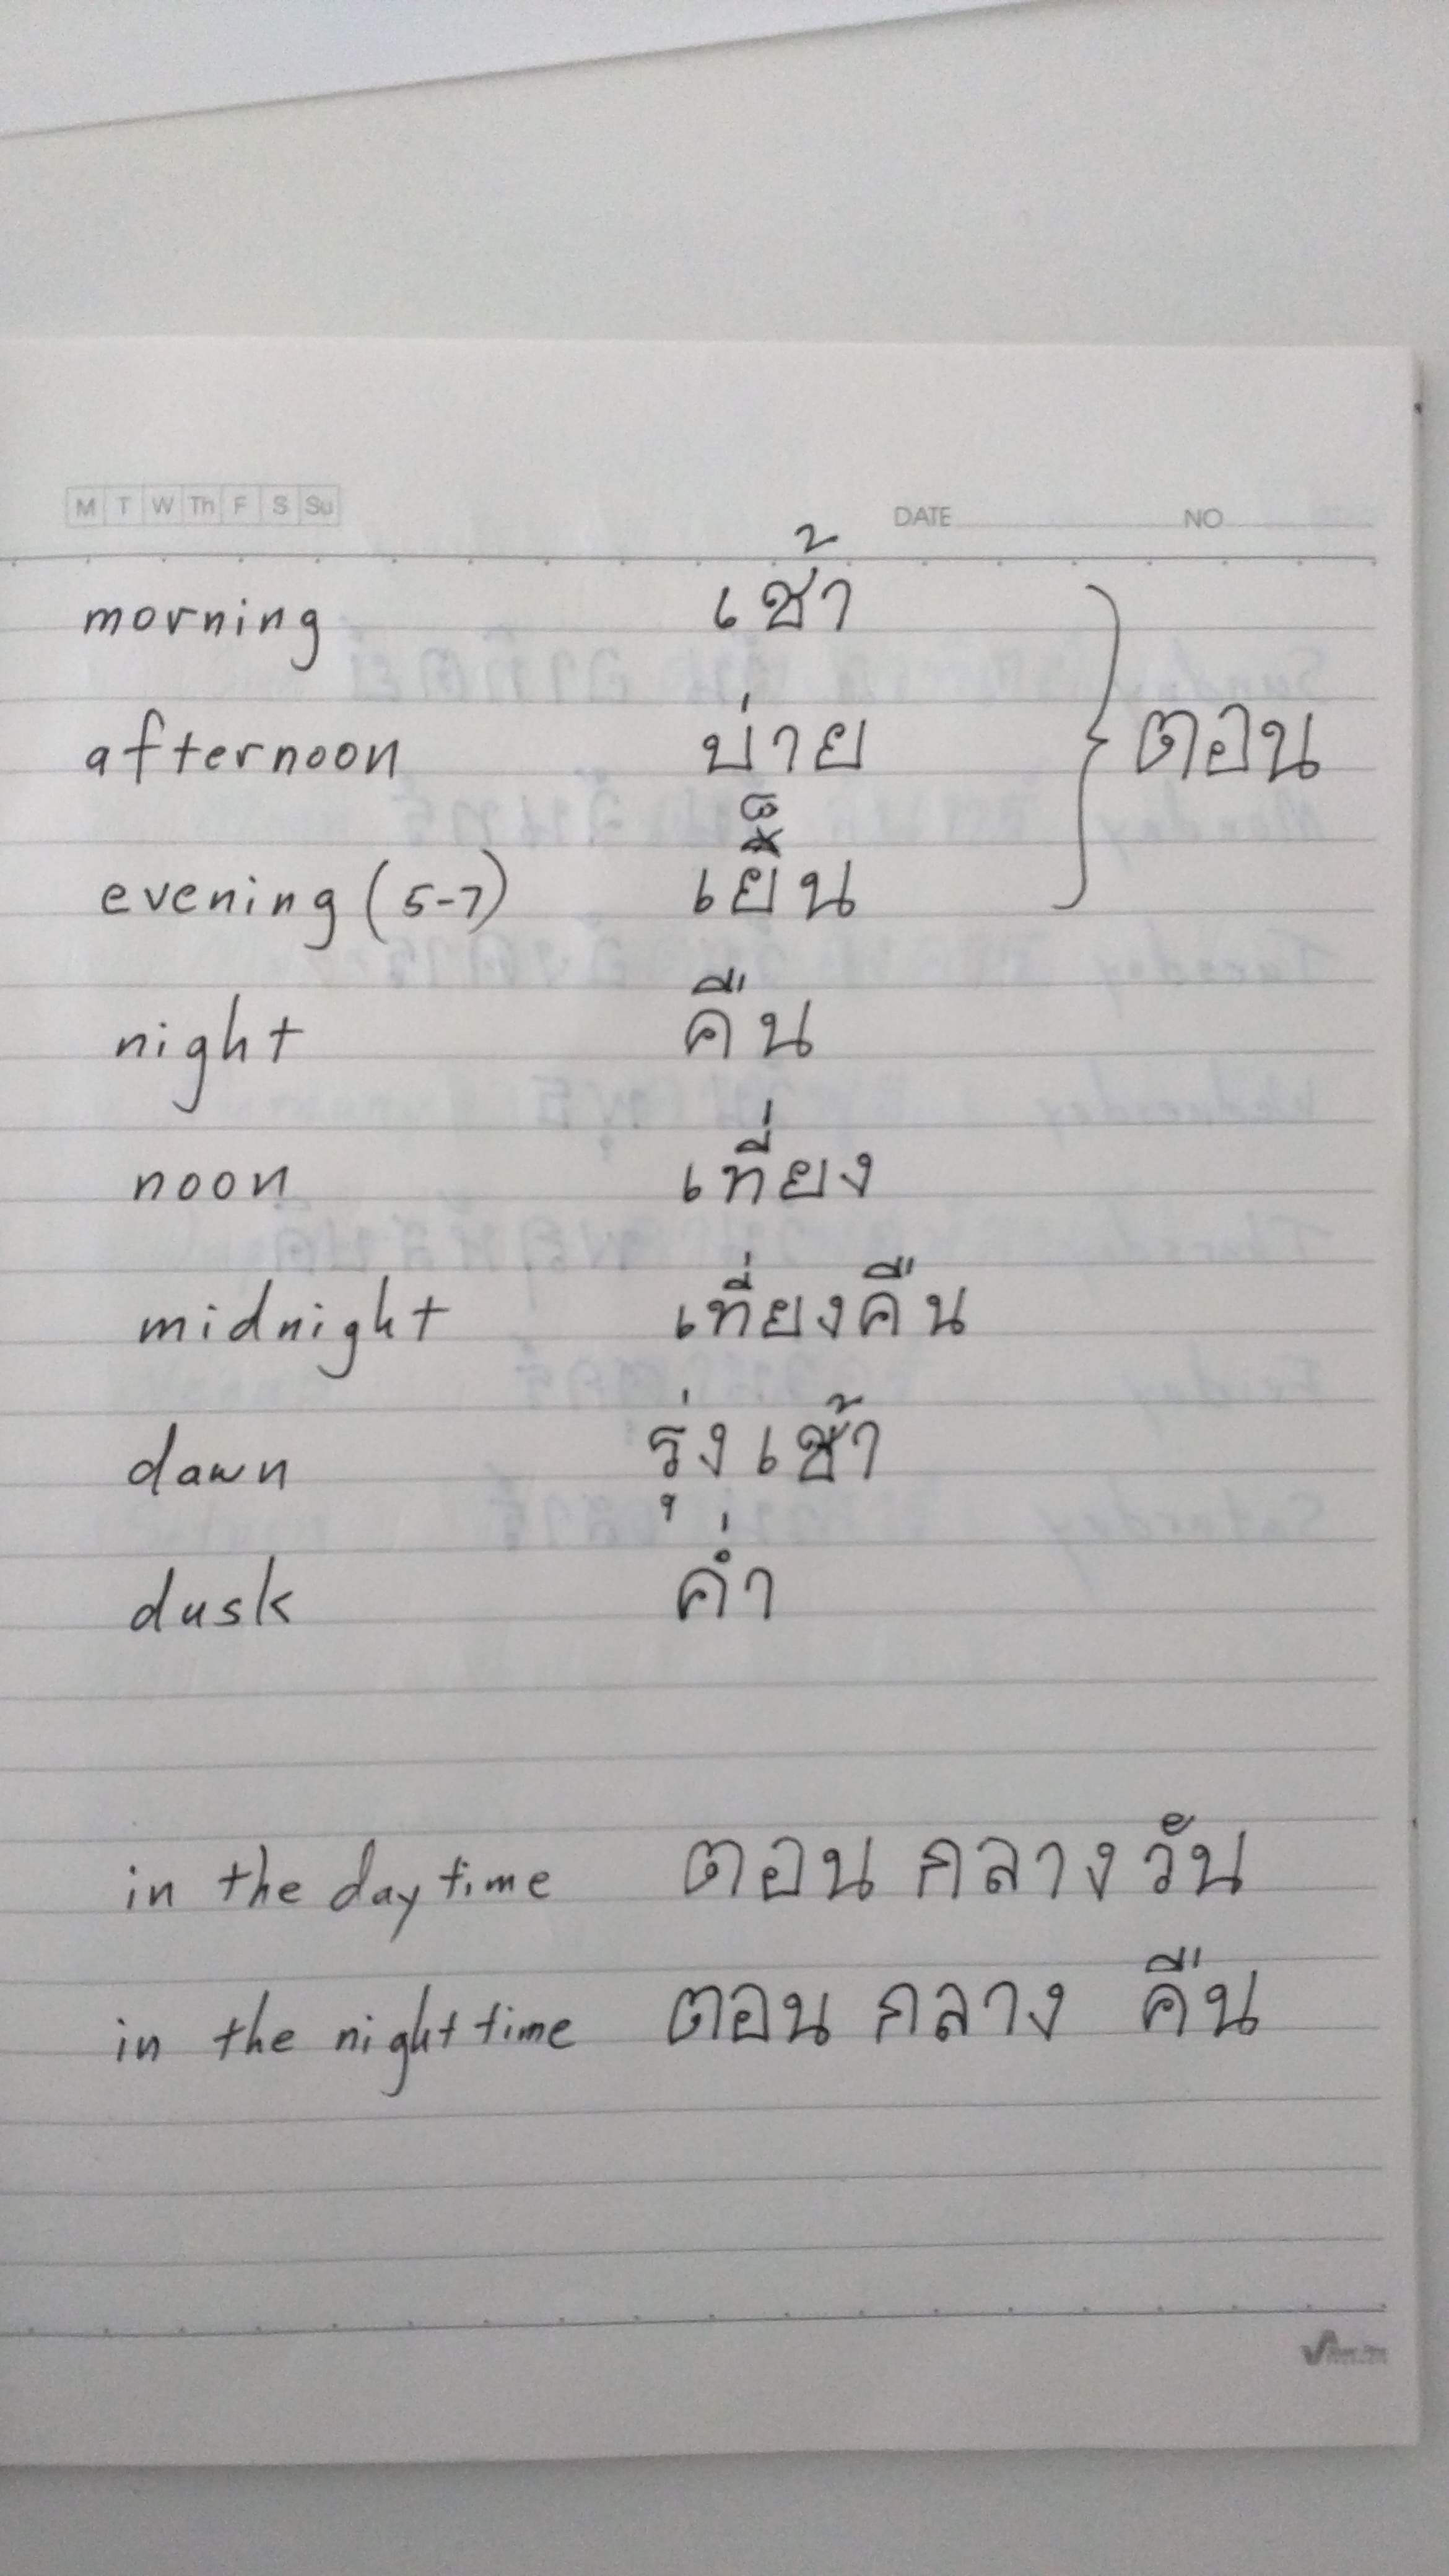 M T W Th F S Su DATE NO
morning เช้า
afternoon บ่าย } ตอน
evening (5-7) เย็น
night คืน
noon เที่ยง
midnight เที่ยงคืน
dawn รุ่งเช้า
dusk ค่ำ
in the daytime ตอน กลางวัน
in the nighttime ตอน กลาง คืน